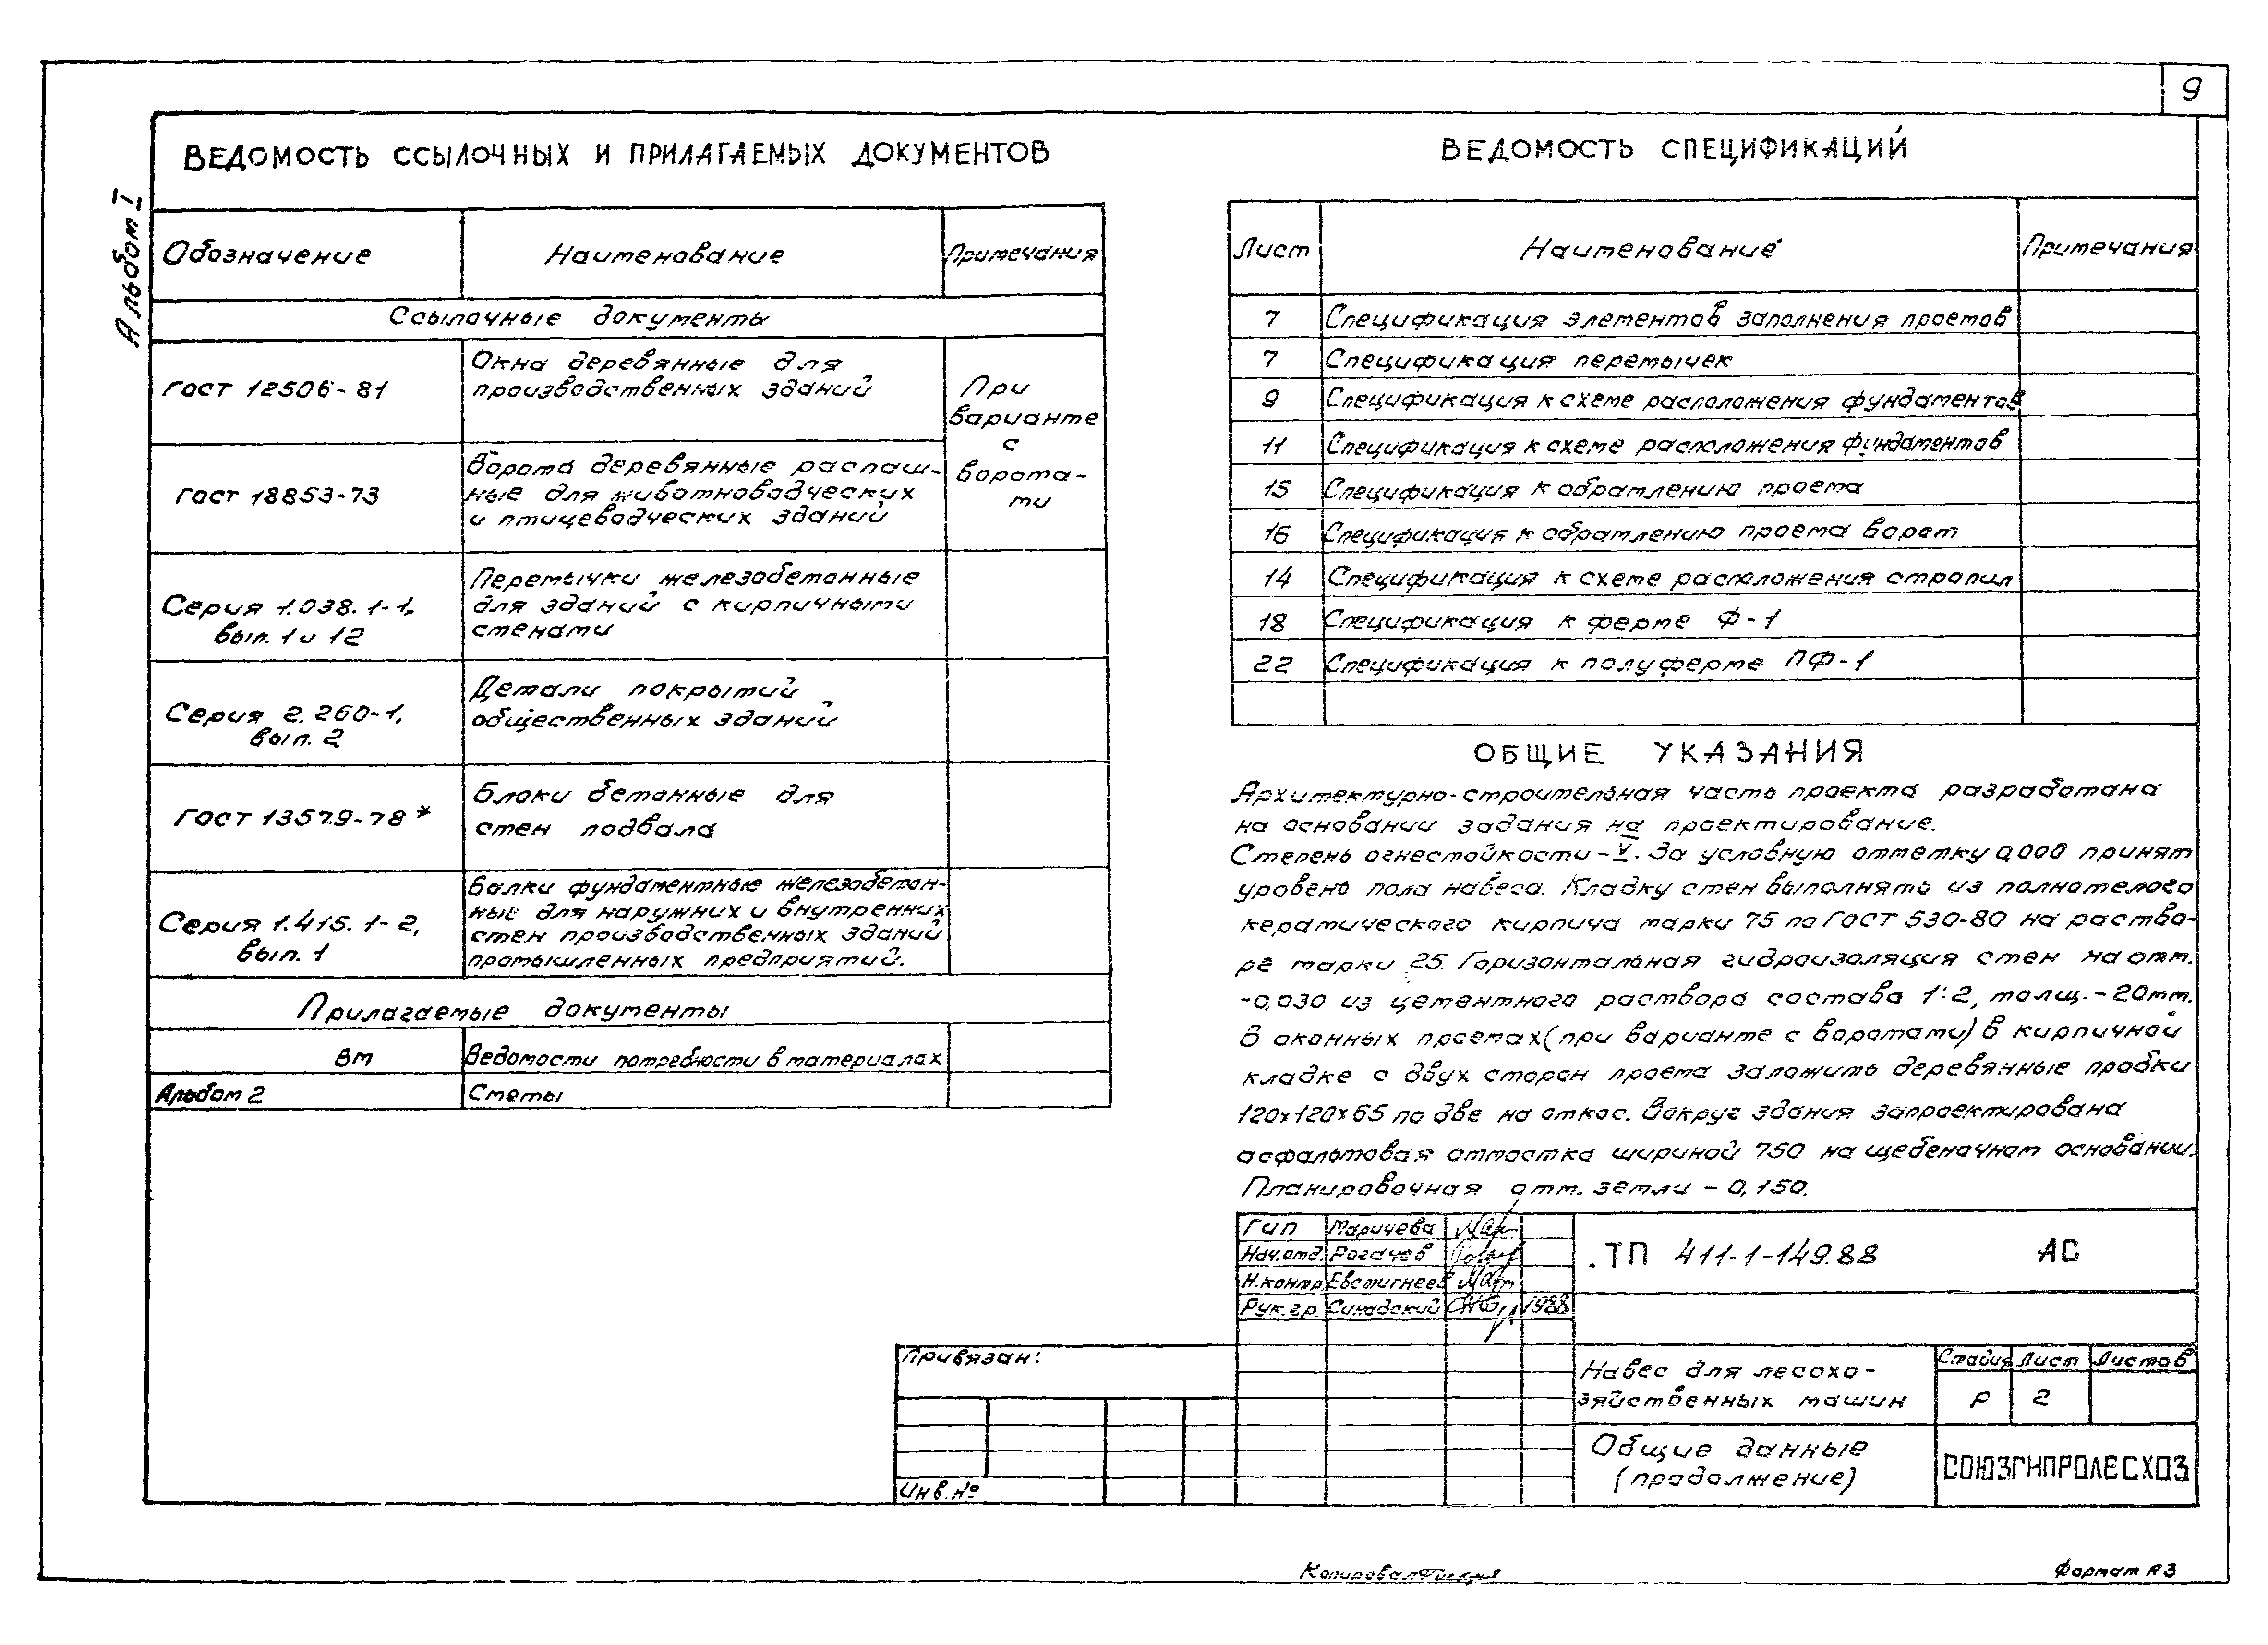 9
Альбом I
ВЕДОМОСТЬ ССЫЛОЧНЫХ И ПРИЛАГАЕМЫХ ДОКУМЕНТОВ
Обозначение Наименование Примечания
Ссылочные документы
ГОСТ 12506-81
Окна деревянные для
производственных зданий
При
варианте
с
ворота-
ми
ГОСТ 18853-73
Ворота деревянные распаш-
ные для животноводческих
и птицеводческих зданий
Серия 1.038.1-1,
вып. 1 и 12
Перемычки железобетонные
для зданий с кирпичными
стенами
Серия 2.260-1,
вып. 2
Детали покрытий
общественных зданий
ГОСТ 13579-78*
Блоки бетонные для
стен подвала
Серия 1.415.1-2,
вып. 1
Балки фундаментные железобетон-
ные для наружних и внутренних
стен производственных зданий
промышленных предприятий.
Прилагаемые документы
ВМ Ведомости потребности в материалах
Альбом 2 Сметы
ВЕДОМОСТЬ СПЕЦИФИКАЦИЙ
Лист Наименование Примечания
7 Спецификация элементов заполнения проемов
7 Спецификация перемычек
9 Спецификация к схеме расположения фундаментов
11 Спецификация к схеме расположения фундаментов
15 Спецификация к обрамлению проема
16 Спецификация к обрамлению проема ворот
14 Спецификация к схеме расположения стропил
18 Спецификация к ферме Ф-1
22 Спецификация к полуферме ПФ-1
ОБЩИЕ УКАЗАНИЯ
Архитектурно-строительная часть проекта разработана
на основании задания на проектирование.
Степень огнестойкости-V. За условную отметку 0,000 принят
уровень пола навеса. Кладку стен выполнять из полнотелого
керамического кирпича марки 75 по ГОСТ 530-80 на раство-
ре марки 25. Горизонтальная гидроизоляция стен на отм.
-0,030 из цементного раствора состава 1:2, толщ.-20мм.
В оконных проемах(при варианте с воротами) в кирпичной
кладке с двух сторон проема заложить деревянные пробки
120х120х65 по две на откос. Вокруг здания запроектирована
асфальтовая отмостка шириной 750 на щебеночном основании.
Планировочная отм. земли - 0,150.
Гип Маричева
Нач.отд. Рогачев
Н.контр Евстигнеев
Рук.гр. Синадский 1988
ТП 411-1-149.88 АС
Привязан:
Инв.№
Навес для лесохо-
зяйственных машин
Стадия Лист Листов
Р 2
Общие данные
(продолжение)
СОЮЗГИПРОЛЕСХОЗ
Копировал
Формат А3